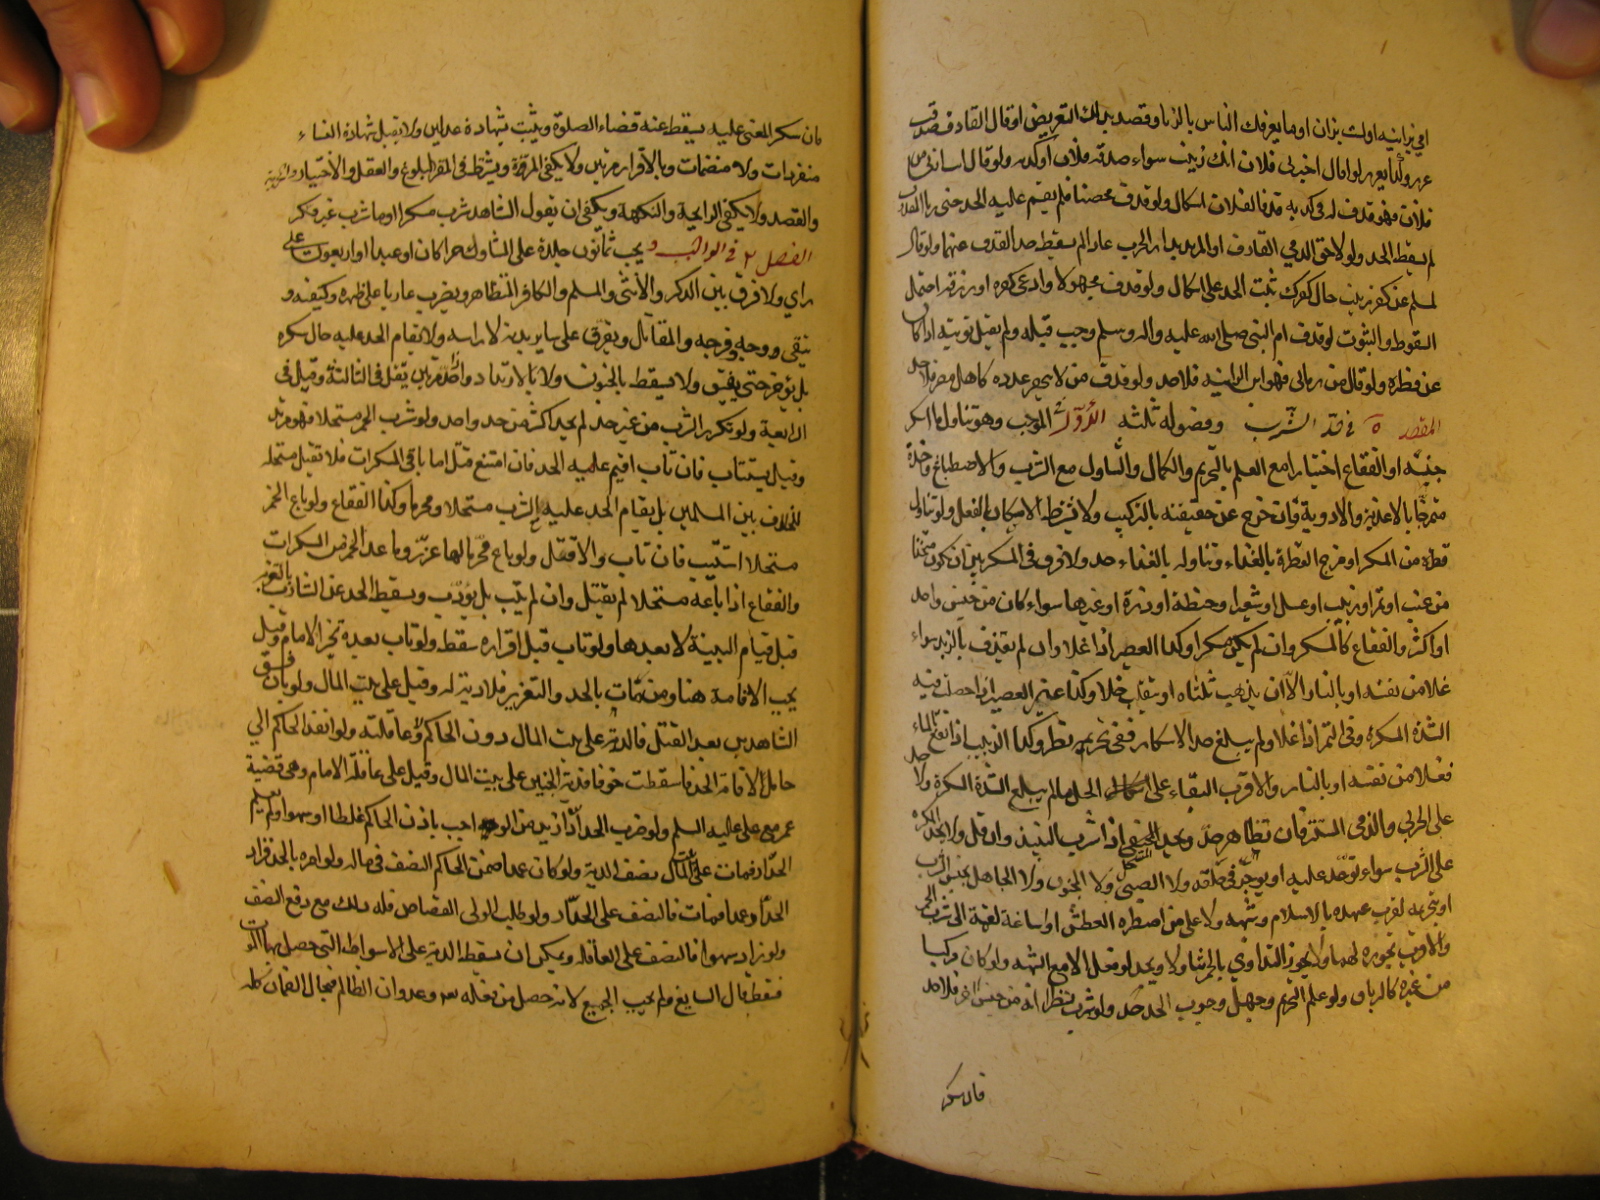 امي بزانيه اولست بزان او ما يعرفك الناس بالزنا وقصد بذلك التعريض او قال القاذف صدقت
عزر ولو قال اخبرني فلان انك زنيت سواء صدقه فلان او كذبه ولو قال اساني من
فلان فهو قذف له وكذبه قذفا لفلان اشكال ولو قذف محصنا فلم يقم عليه الحد حتى زنا المقذوف
لم يسقط الحد ولو لاحق الذمي القاذف او المرتد بدار الحرب عاد لم يسقط حد القذف عنهما ولو قال
لمسلم عن كفر زنيت حال كفرك ثبت الحد على اشكال ولو قذف مجهولا وادعى كفره او رقه احتمل
السقوط والثبوت لو قذف ام النبي صلى الله عليه واله وسلم وجب قتله ولم يقبل توبته اذا كان
عن فطرة ولو قال من رماني فهو ابن الزانيه فلا حد ولو قذف من لا ينحصر عدده كاهل مصر فلا حد
المقصد ٥ في حد الشرب وفصوله ثلثه الاول الموجب وهو تناول ما اسكر
جنسه او الفقاع اختيارا مع العلم بالتحريم والكمال والتناول مع الشرب والاصطباغ واخذه
ممتزجا بالاغذية والادوية وان خرج عن حقيقته بالتركيب ولا يشترط الاسكار بالفعل ولو تناول
قطرة من المسكر او مزج القطرة بالغذاء وتناوله بالغذاء حد ولا فرق في المسكر بين ان يكون متخذا
من عنب او تمر او زبيب او عسل او شعير او حنطة او ذرة او غيرها سواء كان من جنس واحد
او اكثر والفقاع كالمسكر وان لم يكن مسكرا وكذا العصير اذا غلا وان لم يقذف بالزبد سواء
غلا من نفسه او بالنار الا ان يذهب ثلثاه او ينقلب خلا وكذا غير العصير اذا حصلت فيه
الشدة المسكرة وفي التمر اذا غلا ولم يبلغ حد الاسكار ففي تحريمه نظر وكذا الزبيب اذا نقع بالماء
فغلا من نفسه او بالنار والاقرب البقاء على الحل ما لم يبلغ الشدة المسكرة ولا حد
على الحربي والذمي المستتر فان تظاهر حد ويحد الحنفي اذا شرب النبيذ وان قل ولا يحد المكره
على الشرب سواء توعد عليه او يوجر في حلقه ولا الصبي ولا المجنون ولا الجاهل بجنس الشرب
او بتحريمه لقرب عهده بالاسلام وشبهه ولا على من اضطره العطش او اساغة لقمة الى شرب الخمر
والاقرب تجويزه لهما ولا يجوز التداوي بالخمر تناولا ويحد لو فعل الا مع الشبهه ولو كان مركبا
من غيره كالترياق ولو علم التحريم وجهل وجوب الحد حد ولو شرب بظن انه من جنس اخر فلا حد
فان سكر
فان سكر فكالمغمى عليه يسقط عنه قضاء الصلوة ويثبت بشهادة عدلين ولا يقبل شهادة النساء
منفردات ولا منضمات وبالاقرار مرتين ولا يكفي المرة ويشترط في المقر البلوغ والعقل والاختيار والحرية
والقصد ولا يكفي الرايحة والنكهة ويكفي ان يقول الشاهد شرب مسكرا او ما شرب غيره فسكر
الفصل ٢ في الواجب ويجب ثمانون جلدة على المتناول حرا كان او عبدا او اربعون على
راي ولا فرق بين الذكر والانثى والمسلم والكافر المتظاهر ويضرب عاريا على ظهره وكتفيه و
يتقى ووجهه وفرجه والمقاتل ويفرق على ساير بدنه لا راسه ولا يقام الحد عليه حال سكره
بل يؤخر حتى يفيق ولا يسقط بالجنون ولا بالارتداد واذا حد مرتين يقتل في الثالثة وقيل في
الرابعة ولو تكرر الشرب من غير حد لم يحد اكثر من حد واحد ولو شرب الخمر مستحلا فهو مرتد
وقيل يستتاب فان تاب اقيم عليه الحد فان امتنع قتل اما باقي المسكرات فلا يقتل مستحله
للخلاف بين المسلمين بل يقام الحد عليه مع الشرب مستحلا ومحرما وكذا الفقاع ولو باع الخمر
مستحلا استتيب فان تاب والا قتل ولو باع محرما لها عزر وما عدا الخمر من المسكرات
والفقاع اذا باعه مستحلا لم يقتل وان لم يتب بل يؤدب ويسقط الحد عن الشارب بالتوبة
قبل قيام البينة لا بعدها ولو تاب قبل اقراره سقط ولو تاب بعده تخير الامام وقيل
يجب الاقامة هنا ومن مات بالحد والتعزير فلا دية له وقيل على بيت المال ولو بان فسق
الشاهدين بعد القتل فالدية على بيت المال دون الحاكم وعاقلته ولو انفذ الحاكم الى
حامل لاقامة الحد فاسقطت خوفا فدية الجنين على بيت المال وقيل على عاقلة الامام وهي قضية
عمر مع علي عليه السلم ولو ضرب الحداد ازيد من الواجب باذن الحاكم غلطا او سهوا ولم يعلم
الحداد فمات على بيت المال نصف الدية ولو كان عمدا ضمن الحاكم النصف في ماله ولو امره بالحد فزاد
الحداد عمدا فمات فالنصف على الحداد ولو طلب الولى القصاص فله ذلك مع دفع النصف
ولو زاد سهوا فالنصف على العاقلة ويمكن ان يسقط الدية على الاسواط التي حصل بها الموت
فيسقط ما قابل السايغ ولم يجب الجميع لانه حصل من فعله تعالى وعدوان الظالم فيحال الضمان كله